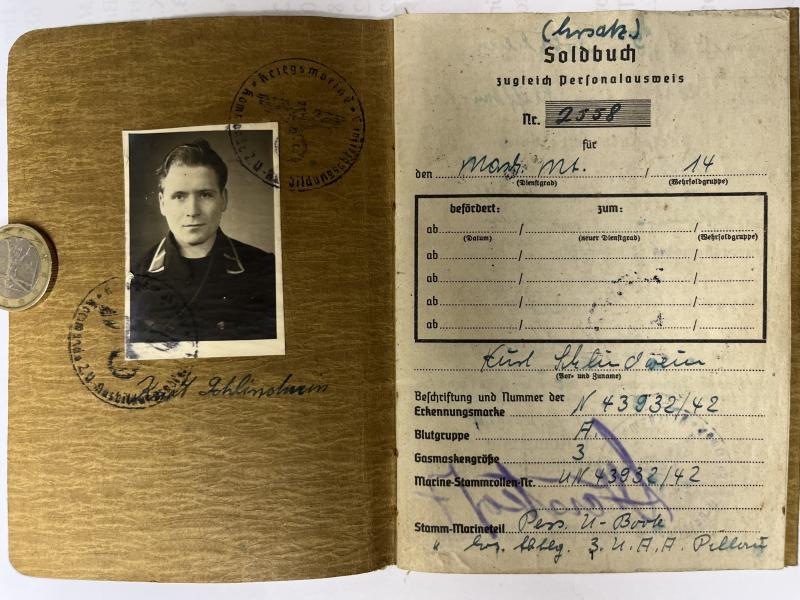 Kriegsmarine
Kurt
(Ersatz)
Soldbuch
zugleich Personalausweis
Nr. 2558
für
den Masch. Mt. / 14
(Dienstgrad) (Wehrsoldgruppe)
befördert: zum:
ab / /
(Datum) (neuer Dienstgrad) (Wehrsoldgruppe)
ab / /
ab / /
ab / /
ab / /
Kurt
(Vor- und Zuname)
Beschriftung und Nummer der
Erkennungsmarke N 43932/42
Blutgruppe A
Gasmaskengröße 3
Marine-Stammrollen-Nr. UN 43932/42
Stamm-Marineteil Pers. U-Boote
" bes. Abtlg. 3. U.A.A. Pillau